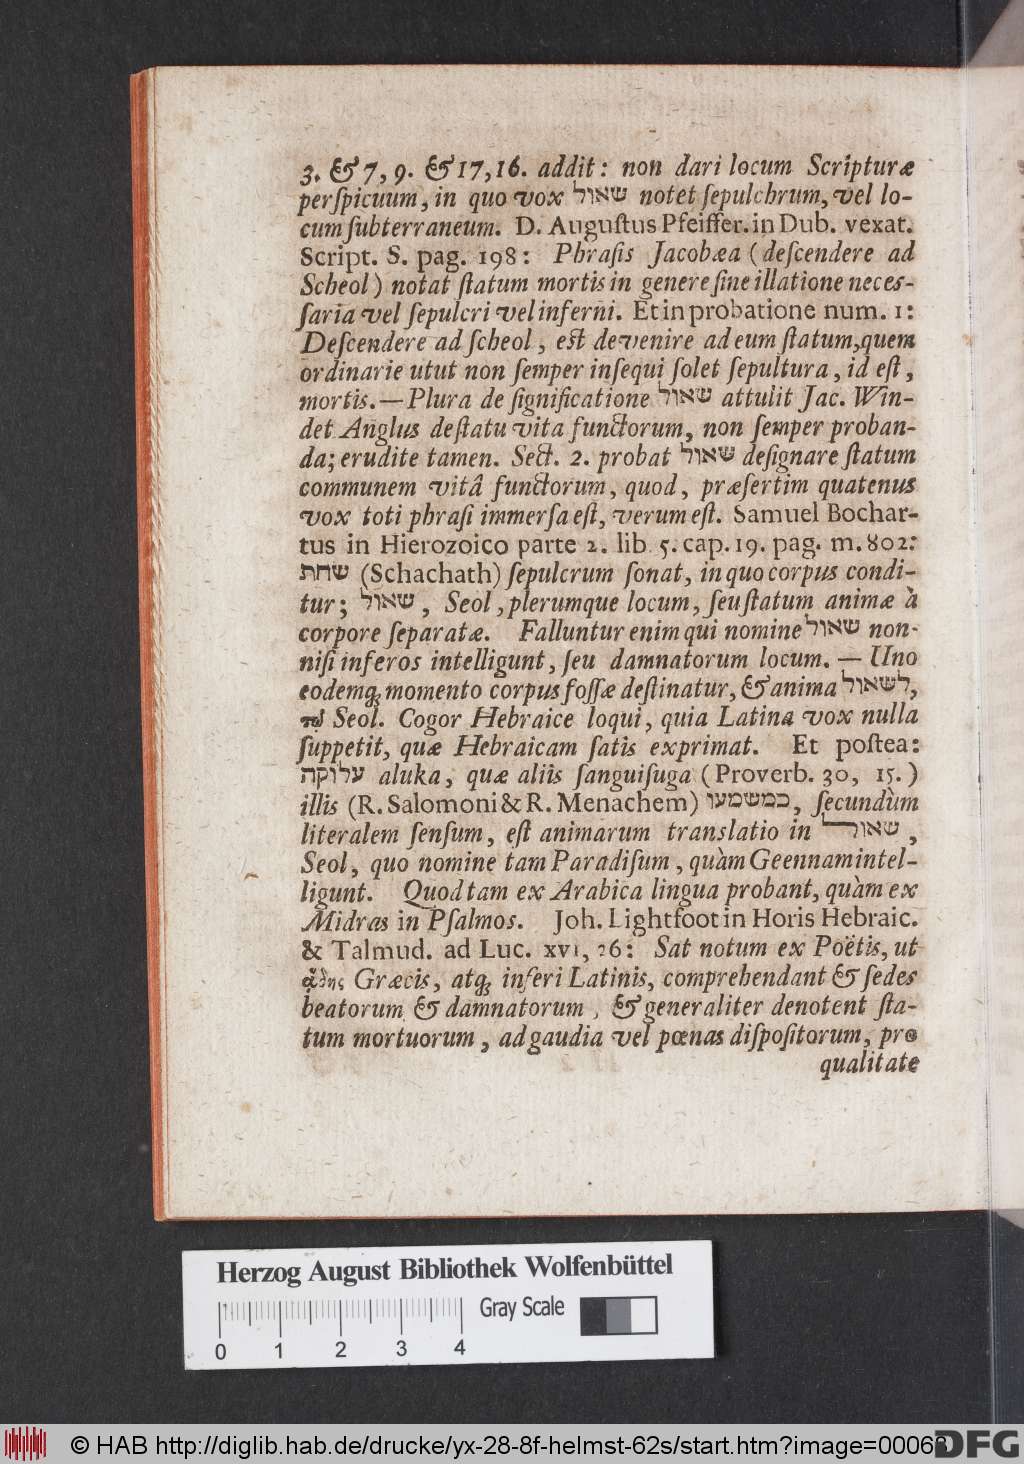 3. & 7, 9. & 17, 16. addit: non dari locum Scripturæ
perſpicuum, in quo vox שאול notet ſepulchrum, vel lo-
cum ſubterraneum. D. Auguſtus Pfeiffer. in Dub. vexat.
Script. S. pag. 198: Phraſis Jacobæa (deſcendere ad
Scheol) notat ſtatum mortis in genere ſine illatione neceſ-
ſaria vel ſepulcri vel inferni. Et in probatione num. 1:
Deſcendere ad ſcheol, eſt devenire ad eum ſtatum, quem
ordinarie utut non ſemper inſequi ſolet ſepultura, id eſt,
mortis. — Plura de ſignificatione שאול attulit Jac. Win-
det Anglus de ſtatu vita functorum, non ſemper proban-
da; erudite tamen. Sect. 2. probat שאול deſignare ſtatum
communem vitâ functorum, quod, præſertim quatenus
vox toti phraſi immerſa eſt, verum eſt. Samuel Bochar-
tus in Hierozoico parte 2. lib 5. cap. 19. pag. m. 802:
שחת (Schachath) ſepulcrum ſonat, in quo corpus condi-
tur; שאול, Seol, plerumque locum, ſeu ſtatum animæ à
corpore ſeparatæ. Falluntur enim qui nomine שאול non-
niſi inferos intelligunt, ſeu damnatorum locum. — Uno
eodemq; momento corpus foſſæ deſtinatur, & anima לשאול,
τῷ Seol. Cogor Hebraice loqui, quia Latina vox nulla
ſuppetit, quæ Hebraicam ſatis exprimat. Et poſtea:
עלוקה aluka, quæ aliis ſanguiſuga (Proverb. 30, 15.)
illis (R. Salomoni & R. Menachem) כמשמעו, ſecundùm
literalem ſenſum, eſt animarum translatio in שאול,
Seol, quo nomine tam Paradiſum, quàm Geennam intel-
ligunt. Quod tam ex Arabica lingua probant, quàm ex
Midras in Pſalmos. Joh. Lightfoot in Horis Hebraic.
& Talmud. ad Luc. XVI, 26: Sat notum ex Poëtis, ut
ᾅδης Græcis, atq; inferi Latinis, comprehendant & ſedes
beatorum & damnatorum, & generaliter denotent ſta-
tum mortuorum, ad gaudia vel pœnas diſpoſitorum, pro
qualitate
Herzog August Bibliothek Wolfenbüttel
Gray Scale
0 1 2 3 4
© HAB http://diglib.hab.de/drucke/yx-28-8f-helmst-62s/start.htm?image=00068
DFG